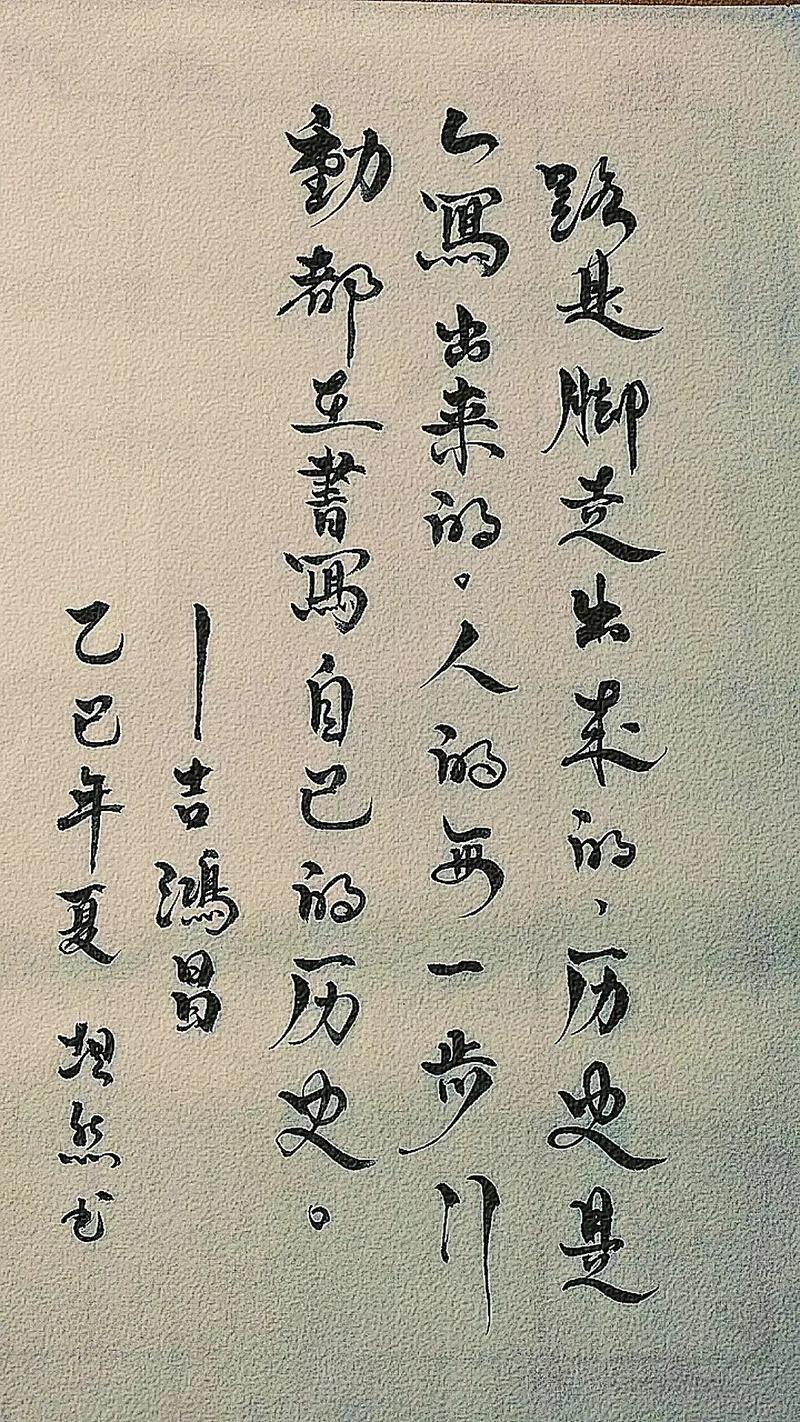 路是脚走出来的，历史是
人寫出来的。人的每一步行
動都在書寫自己的历史。
—吉鴻昌
乙巳年夏 坦然书